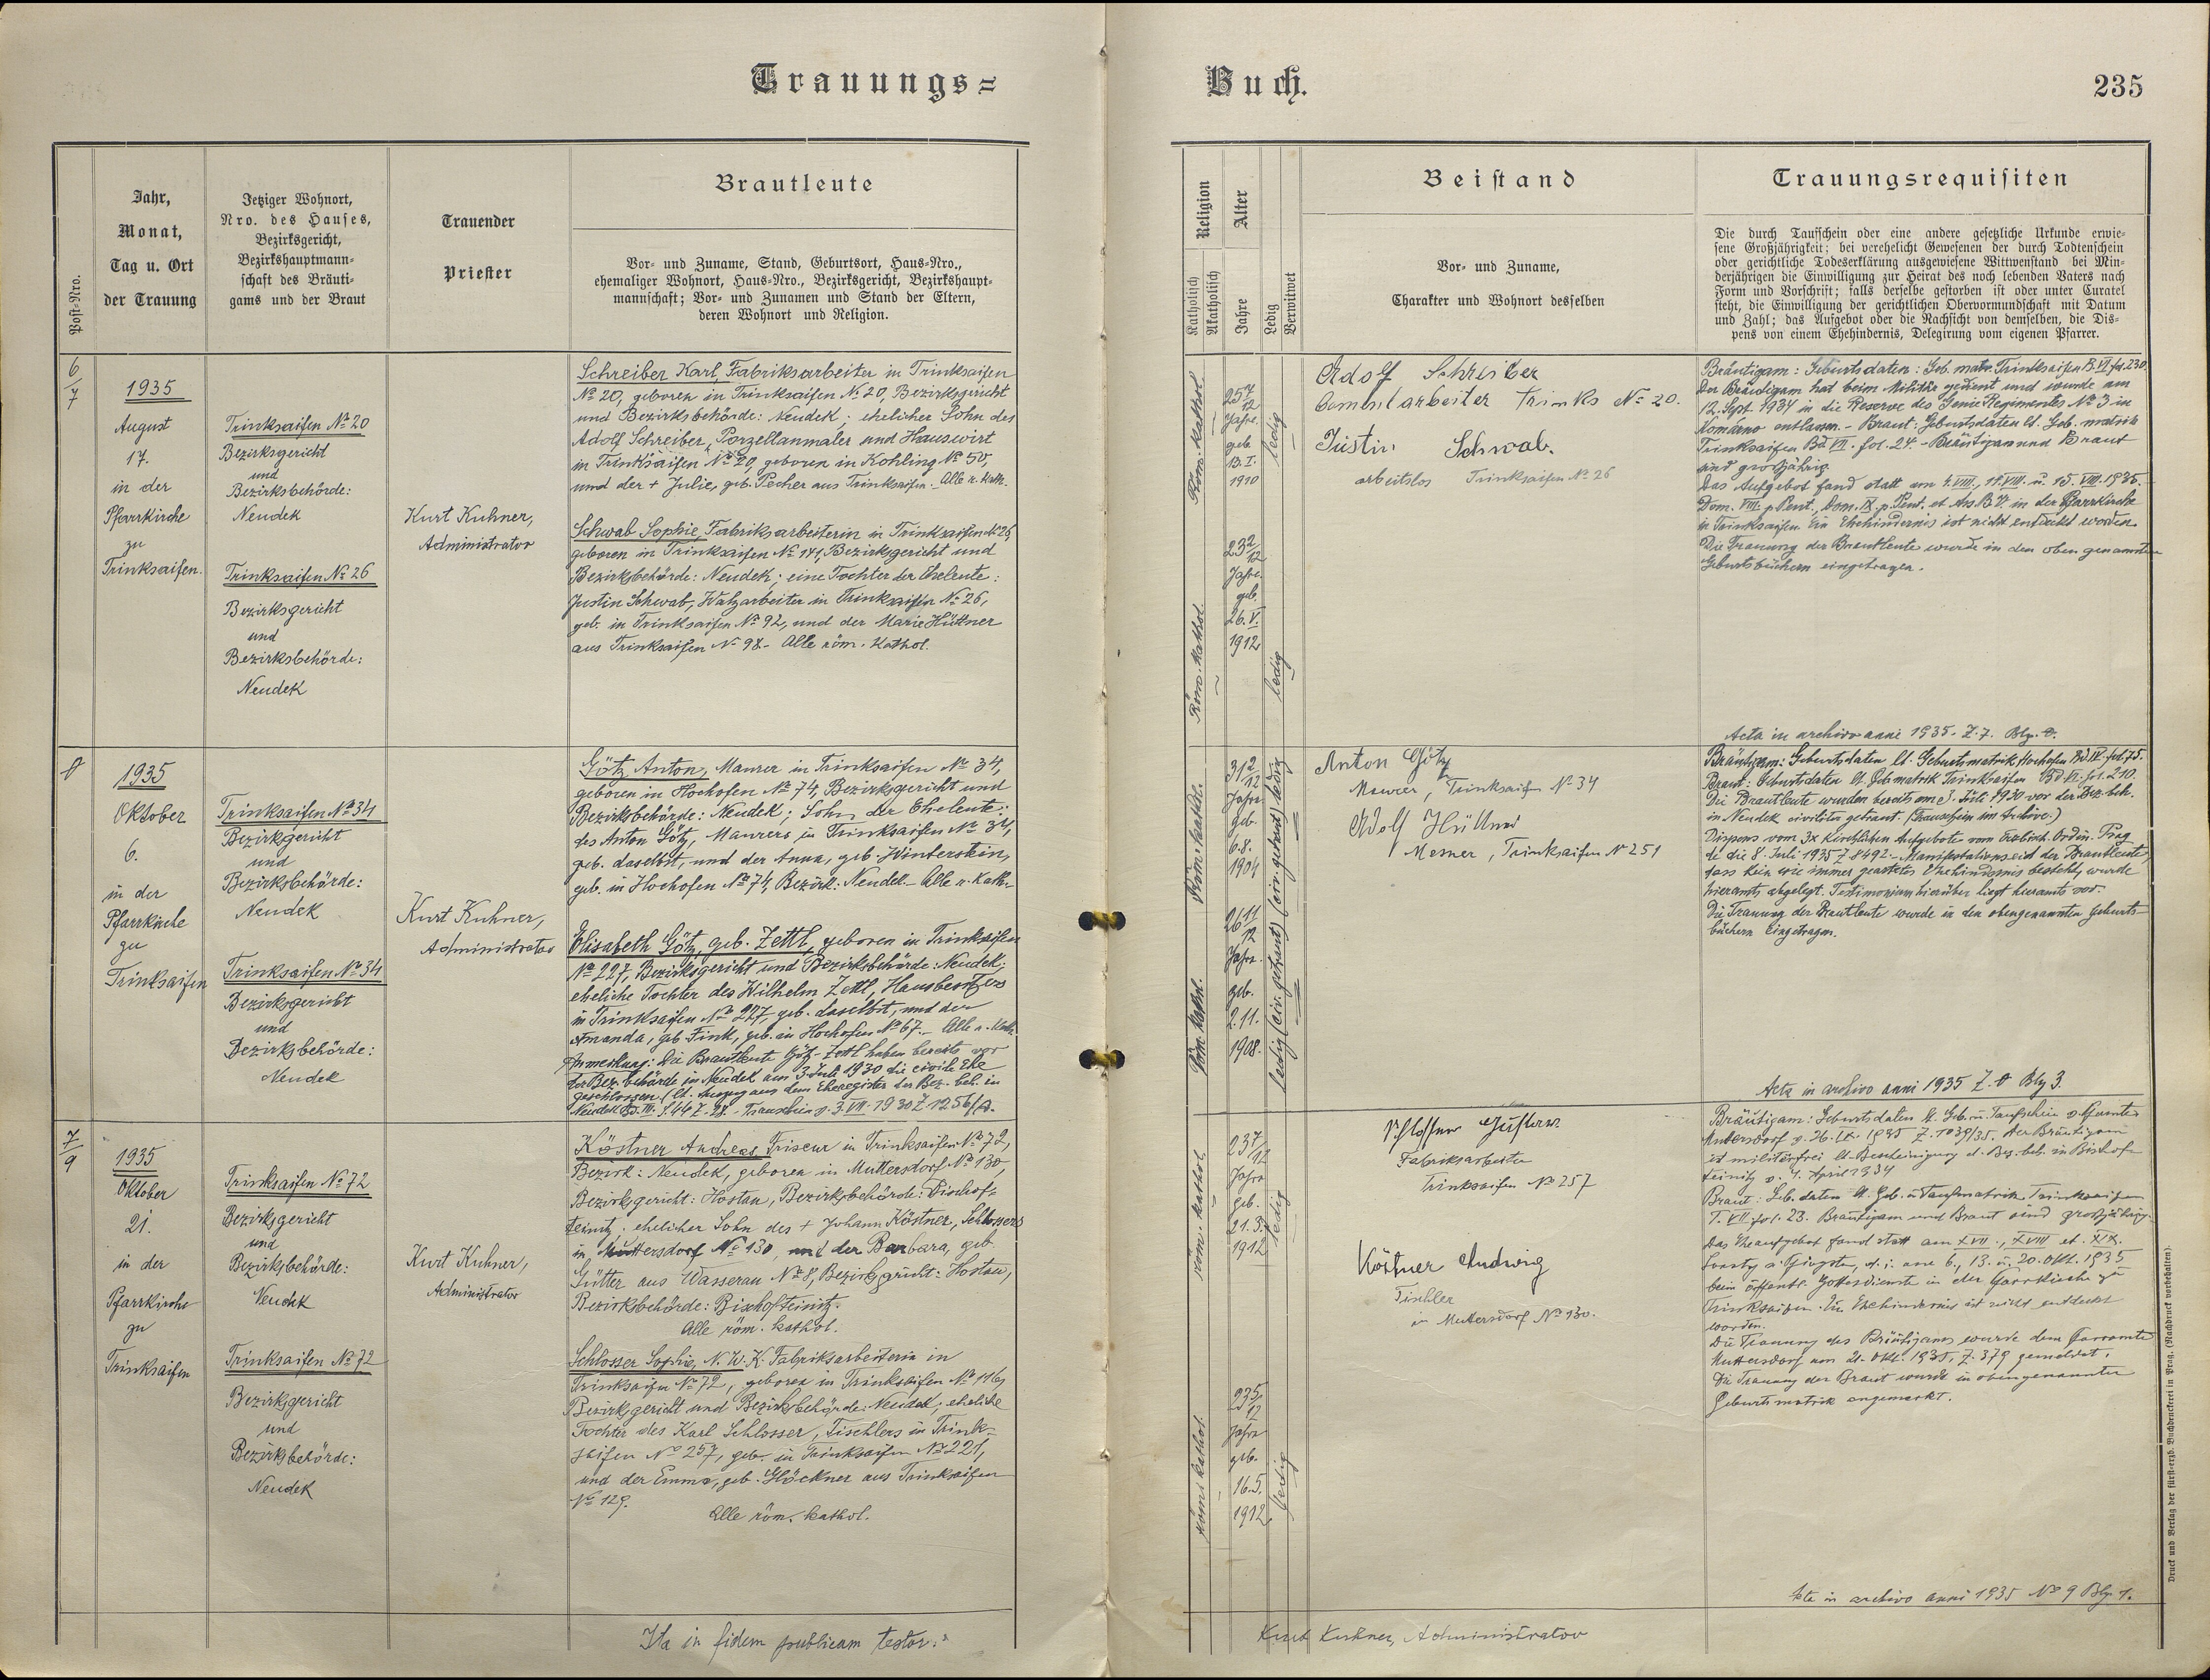 Trauungs=
Buch.
235
Post-Nro.
Jahr,
Monat,
Tag u. Ort
der Trauung
Jetziger Wohnort,
Nro. des Hauses,
Bezirksgericht,
Bezirkshauptmann-
schaft des Bräuti-
gams und der Braut
Trauender
Priester
Brautleute
Vor- und Zuname, Stand, Geburtsort, Haus-Nro.,
ehemaliger Wohnort, Haus-Nro., Bezirksgericht, Bezirkshaupt-
mannschaft; Vor- und Zunamen und Stand der Eltern,
deren Wohnort und Religion.
Religion
Katholisch
Akatholisch
Alter
Jahre
Ledig
Verwitwet
Beistand
Vor- und Zuname,
Charakter und Wohnort desselben
Trauungsrequisiten
Die durch Taufschein oder eine andere gesetzliche Urkunde erwie-
sene Großjährigkeit; bei verehelicht Gewesenen der durch Todtenschein
oder gerichtliche Todeserklärung ausgewiesene Wittwenstand bei Min-
derjährigen die Einwilligung zur Heirat des noch lebenden Vaters nach
Form und Vorschrift; falls derselbe gestorben ist oder unter Curatel
steht, die Einwilligung der gerichtlichen Obervormundschaft mit Datum
und Zahl; das Aufgebot oder die Nachsicht von demselben, die Dis-
pens von einem Ehehindernis, Delegirung vom eigenen Pfarrer.
6
7
1935
August
17.
in der
Pfarrkirche
zu
Trinksaifen.
Trinksaifen № 20
Bezirksgericht
und
Bezirksbehörde:
Neudek
Trinksaifen № 26
Bezirksgericht
und
Bezirksbehörde:
Neudek
Kurt Kuhner,
Administrator
Schreiber Karl, Fabriksarbeiter in Trinksaifen
№ 20, geboren in Trinksaifen № 20, Bezirksgericht
und Bezirksbehörde: Neudek; ehelicher Sohn des
Adolf Schreiber, Porzellanmaler und Hauswirt
in Trinksaifen № 20, geboren in Kohling № 50,
und der + Julie, geb. Pecher aus Trinksaifen. Alle r. kath.
Schwab Sophie, Fabriksarbeiterin in Trinksaifen № 26,
geboren in Trinksaifen № 141, Bezirksgericht und
Bezirksbehörde: Neudek; eine Tochter der Eheleute:
Justin Schwab, Walzarbeiter in Trinksaifen № 26,
geb. in Trinksaifen № 92, und der Marie Hüttner
aus Trinksaifen № 98. - Alle röm. kathol.
Röm. kathol.
25 7/12
Jahre
geb
13. I.
1910
ledig
Röm. kathol.
23 2/12
Jahre
geb.
26. V.
1912
ledig
Adolf Schreiber
arbeiter Trinks № 20.
Justin Schwab.
arbeitslos Trinksaifen № 26
Bräutigam: Geburtsdaten: Geb. matr. Trinksaifen B. VI fol. 230.
Der Bräutigam hat beim Militär gedient und wurde am
12. Sept. 1934 in die Reserve des Genie Regimentes № 3 in
Komárno entlassen. - Braut: Geburtsdaten lt. Geb. matrik
Trinksaifen Bd VII. fol. 24 - Bräutigam und Braut
sind großjährig.
Das Aufgebot fand statt am 4. VIII., 11. VIII. u. 15. VIII. 1935.
Dom. VIII. p. Pent., Dom. IX p. Pent. et Ass. B. V. in der Pfarrkirche
in Trinksaifen. Ein Ehehindernis ist nicht entdeckt worden.
Die Trauung der Brautleute wurde in den oben genannten
Geburtsbüchern eingetragen.
Acta in archivo anni 1935. Z. 7.
8
1935
Oktober
6.
in der
Pfarrkirche
zu
Trinksaifen
Trinksaifen № 34
Bezirksgericht
und
Bezirksbehörde:
Neudek
Trinksaifen № 34
Bezirksgericht
und
Bezirksbehörde:
Neudek
Kurt Kuhner,
Administrator
Götz Anton, Maurer in Trinksaifen № 34,
geboren in Hochofen № 74, Bezirksgericht und
Bezirksbehörde: Neudek; Sohn der Eheleute:
des Anton Götz, Maurers in Trinksaifen № 34,
geb. daselbst, und der Anna, geb. Winterstein,
geb. in Hochofen № 74, Bezirk: Neudek. - Alle r. kath.
Elisabeth Götz, geb. Zettl, geboren in Trinksaifen
№ 227, Bezirksgericht und Bezirksbehörde: Neudek;
eheliche Tochter des Wilhelm Zettl, Hausbesitzers
in Trinksaifen № 227, geb. daselbst, und der
Amanda, geb. Fink, geb. in Hochofen № 67. - Alle r. kath.
Anmerkung: Die Brautleute Götz-Zettl haben bereits vor
der Bez. behörde in Neudek am 3. Juli 1930 die civile Ehe
geschlossen (lt. Auszug aus dem Eheregister der Bez. beh. in
Neudek Bd. III. S. 44 Z. 28. - Trauschein v. 3. VII. 1930 Z. 1256/A.
Röm. kathol.
31 2/12
Jahre
geb.
6. 8.
1904
ledig (civ. getraut)
Röm. kathol.
26 11/12
Jahre.
geb.
2. 11.
1908.
ledig (civ. getraut)
Anton Götz
Maurer, Trinksaifen № 34
Adolf Hüttner
Mesner, Trinksaifen № 251
Bräutigam: Geburtsdaten lt. Geburtsmatrik Hochofen Bd IV. fol. 75.
Braut: Geburtsdaten lt. Geb. matrik Trinksaifen Bd VI. fol. 210.
Die Brautleute wurden bereits am 3. Juli 1930 vor der Bez. beh.
in Neudek civiliter getraut. (Trauschein im Archive.)
Dispens vom 3x kirchlichen Aufgebote vom Erzbisch. Ordin. Prag
de die 8. Juli 1935 Z. 8492. - Manifestationseid der Brautleute,
dass kein wie immer geartetes Ehehindernis bestehe, wurde
hieramts abgelegt. Testimonium hierüber liegt hieramts vor.
Die Trauung der Brautleute wurde in den obengenannten Geburts-
büchern eingetragen.
Acta in archivo anni 1935 Z. 8 Blg 3.
7
9
1935
Oktober
21.
in der
Pfarrkirche
zu
Trinksaifen
Trinksaifen № 72
Bezirksgericht
und
Bezirksbehörde:
Neudek
Trinksaifen № 72
Bezirksgericht
und
Bezirksbehörde:
Neudek
Kurt Kuhner,
Administrator
Köstner Andreas Friseur in Trinksaifen № 72,
Bezirk: Neudek, geboren in Muttersdorf № 130,
Bezirksgericht: Hostau, Bezirksbehörde: Bischof-
teinitz. ehelicher Sohn des + Johann Köstner, Schlossers
in Muttersdorf № 130, und der Barbara, geb.
Gütter aus Wasserau № 8, Bezirksgericht: Hostau,
Bezirksbehörde: Bischofteinitz.
Alle röm. kathol.
Schlosser Sophie, N. W. K. Fabriksarbeiterin in
Trinksaifen № 72, geboren in Trinksaifen № 116,
Bezirksgericht und Bezirksbehörde: Neudek, eheliche
Tochter des Karl Schlosser, Tischlers in Trink-
saifen № 257, geb. in Trinksaifen № 221,
und der Emma, geb. Glöckner aus Trinksaifen
№ 129.
Alle röm. kathol.
röm. kathol.
23 7/12
Jahre
geb.
21. 3.
1912
ledig
röm. kathol.
23 5/12
Jahre
geb.
16. 5.
1912.
ledig
Schlosser Gustav
Fabriksarbeiter
Trinksaifen № 257
Köstner Ludwig
Tischler
in Muttersdorf № 130.
Bräutigam: Geburtsdaten lt. Geb. u. Taufschein v. Pfarramte
Muttersdorf v. 26. IX. 1935 Z. 1039/35. Der Bräutigam
ist militärfrei lt. Bescheinigung d. Bez. beh. in Bischof-
teinitz v. 4. April 1934
Braut: Geb. daten lt. Geb. u. Taufmatrik Trinksaifen
T. VII fol. 23. Bräutigam und Braut sind großjährig.
Das Eheaufgebot fand statt am XVII., XVIII et. XIX.
Sonntg n. Pfingsten, d. i. am 6., 13. u. 20. Okt. 1935
beim öffentl. Gottesdienste in der Pfarrkirche zu
Trinksaifen. Ein Ehehindernis ist nicht entdeckt
worden.
Die Trauung des Bräutigams wurde dem Pfarramte
Muttersdorf am 21. Okt. 1935, Z. 379 gemeldet.
Die Trauung der Braut wurde in obengenannter
Geburtsmatrik angemerkt.
Acta in archivo anni 1935 № 9 Blg. 1.
Ita in fidem publicam testor:
Kurt Kuhner, Administrator
Druck und Verlag der fürst-erzb. Buchdruckerei in Prag. (Nachdruck vorbehalten).